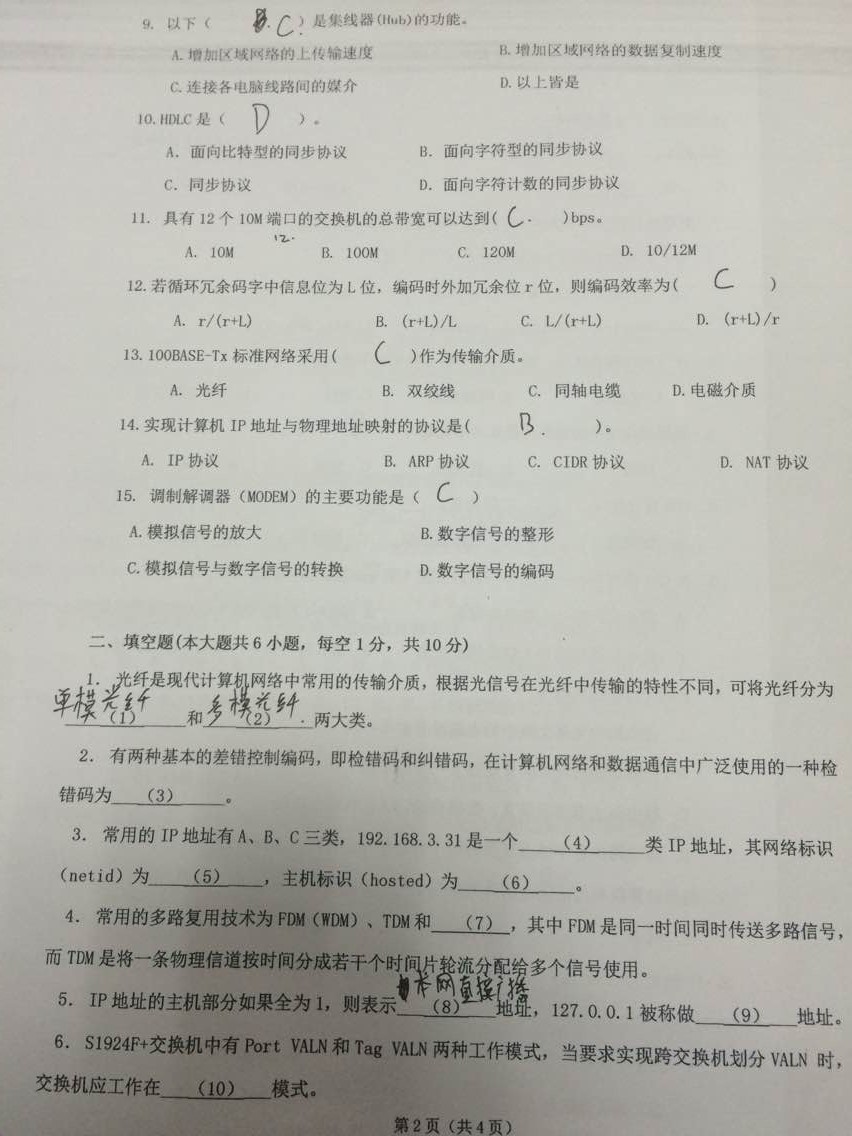 9. 以下（ C. ）是集线器(Hub)的功能。
A. 增加区域网络的上传输速度 B. 增加区域网络的数据复制速度
C. 连接各电脑线路间的媒介 D. 以上皆是
10. HDLC 是（ D ）。
A. 面向比特型的同步协议 B. 面向字符型的同步协议
C. 同步协议 D. 面向字符计数的同步协议
11. 具有 12 个 10M 端口的交换机的总带宽可以达到( C. )bps。
12.
A. 10M B. 100M C. 120M D. 10/12M
12. 若循环冗余码字中信息位为 L 位，编码时外加冗余位 r 位，则编码效率为( C )
A. r/(r+L) B. (r+L)/L C. L/(r+L) D. (r+L)/r
13. 100BASE-Tx 标准网络采用( C )作为传输介质。
A. 光纤 B. 双绞线 C. 同轴电缆 D. 电磁介质
14. 实现计算机 IP 地址与物理地址映射的协议是( B. )。
A. IP 协议 B. ARP 协议 C. CIDR 协议 D. NAT 协议
15. 调制解调器（MODEM）的主要功能是（ C ）
A. 模拟信号的放大 B. 数字信号的整形
C. 模拟信号与数字信号的转换 D. 数字信号的编码
二、填空题(本大题共 6 小题，每空 1 分，共 10 分)
1. 光纤是现代计算机网络中常用的传输介质，根据光信号在光纤中传输的特性不同，可将光纤分为
单模光纤 (1) 和 多模光纤 (2) 两大类。
2. 有两种基本的差错控制编码，即检错码和纠错码，在计算机网络和数据通信中广泛使用的一种检
错码为 (3) 。
3. 常用的 IP 地址有 A、B、C 三类，192.168.3.31 是一个 (4) 类 IP 地址，其网络标识
（netid）为 (5) ，主机标识（hosted）为 (6) 。
4. 常用的多路复用技术为 FDM（WDM）、TDM 和 (7) ，其中 FDM 是同一时间同时传送多路信号，
而 TDM 是将一条物理信道按时间分成若干个时间片轮流分配给多个信号使用。
本网直接广播
5. IP 地址的主机部分如果全为 1，则表示 (8) 地址，127.0.0.1 被称做 (9) 地址。
6. S1924F+交换机中有 Port VALN 和 Tag VALN 两种工作模式，当要求实现跨交换机划分 VALN 时，
交换机应工作在 (10) 模式。
第 2 页（共 4 页）